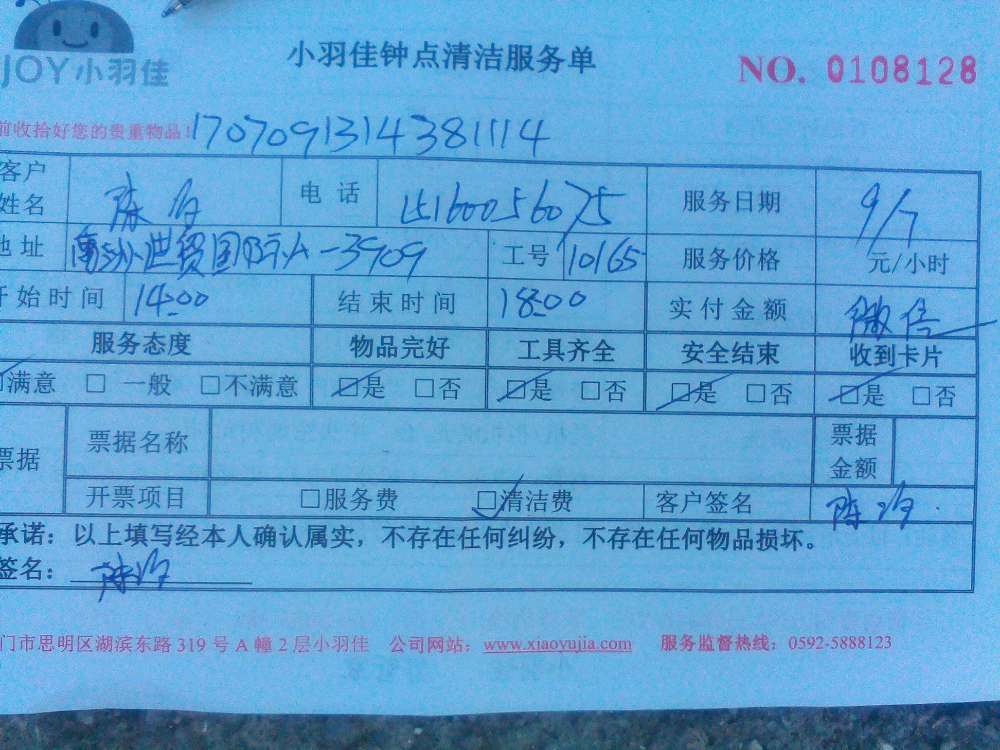 JOY小羽佳
小羽佳钟点清洁服务单
NO. 0108128
前收拾好您的贵重物品!
1707091314381114
客户姓名 陈 电话 15160056075 服务日期 9/7
地址 世贸国 3909 工号 10165 服务价格 元/小时
开始时间 14:00 结束时间 18:00 实付金额 微信
服务态度 物品完好 工具齐全 安全结束 收到卡片
☑满意 □一般 □不满意 ☑是 □否 ☑是 □否 ☑是 □否 ☑是 □否
票据 票据名称 票据金额
开票项目 □服务费 ☑清洁费 客户签名 陈
承诺：以上填写经本人确认属实，不存在任何纠纷，不存在任何物品损坏。
签名： 陈
门市思明区湖滨东路 319 号 A 幢 2 层小羽佳 公司网站：www.xiaoyujia.com 服务监督热线：0592-5888123